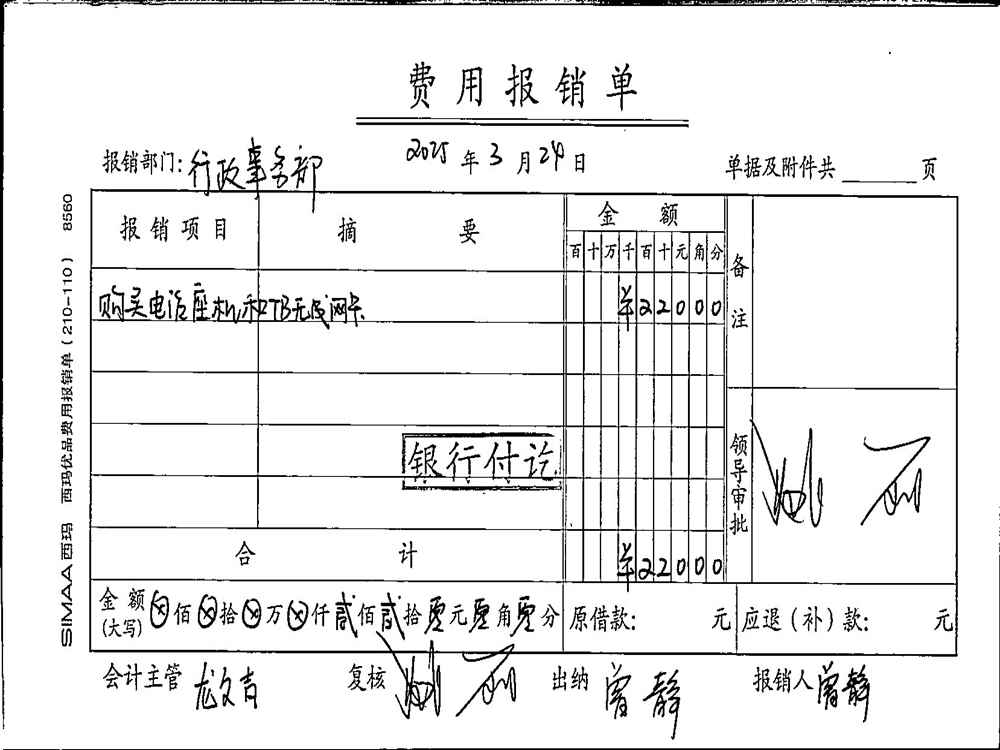 费用报销单
报销部门:行政事务部 2025年3月24日 单据及附件共 页
报销项目 摘要 金额 备注
百十万千百十元角分
购买电话座机和TB无线网卡 ¥22000
银行付讫
领导审批
合计 ¥22000
金额(大写) ⊗佰⊗拾⊗万⊗仟贰佰贰拾零元零角零分 原借款: 元 应退(补)款: 元
会计主管 龙文吉 复核 出纳 曾静 报销人 曾静
SIMAA西玛 西玛优品费用报销单(210-110) 8560